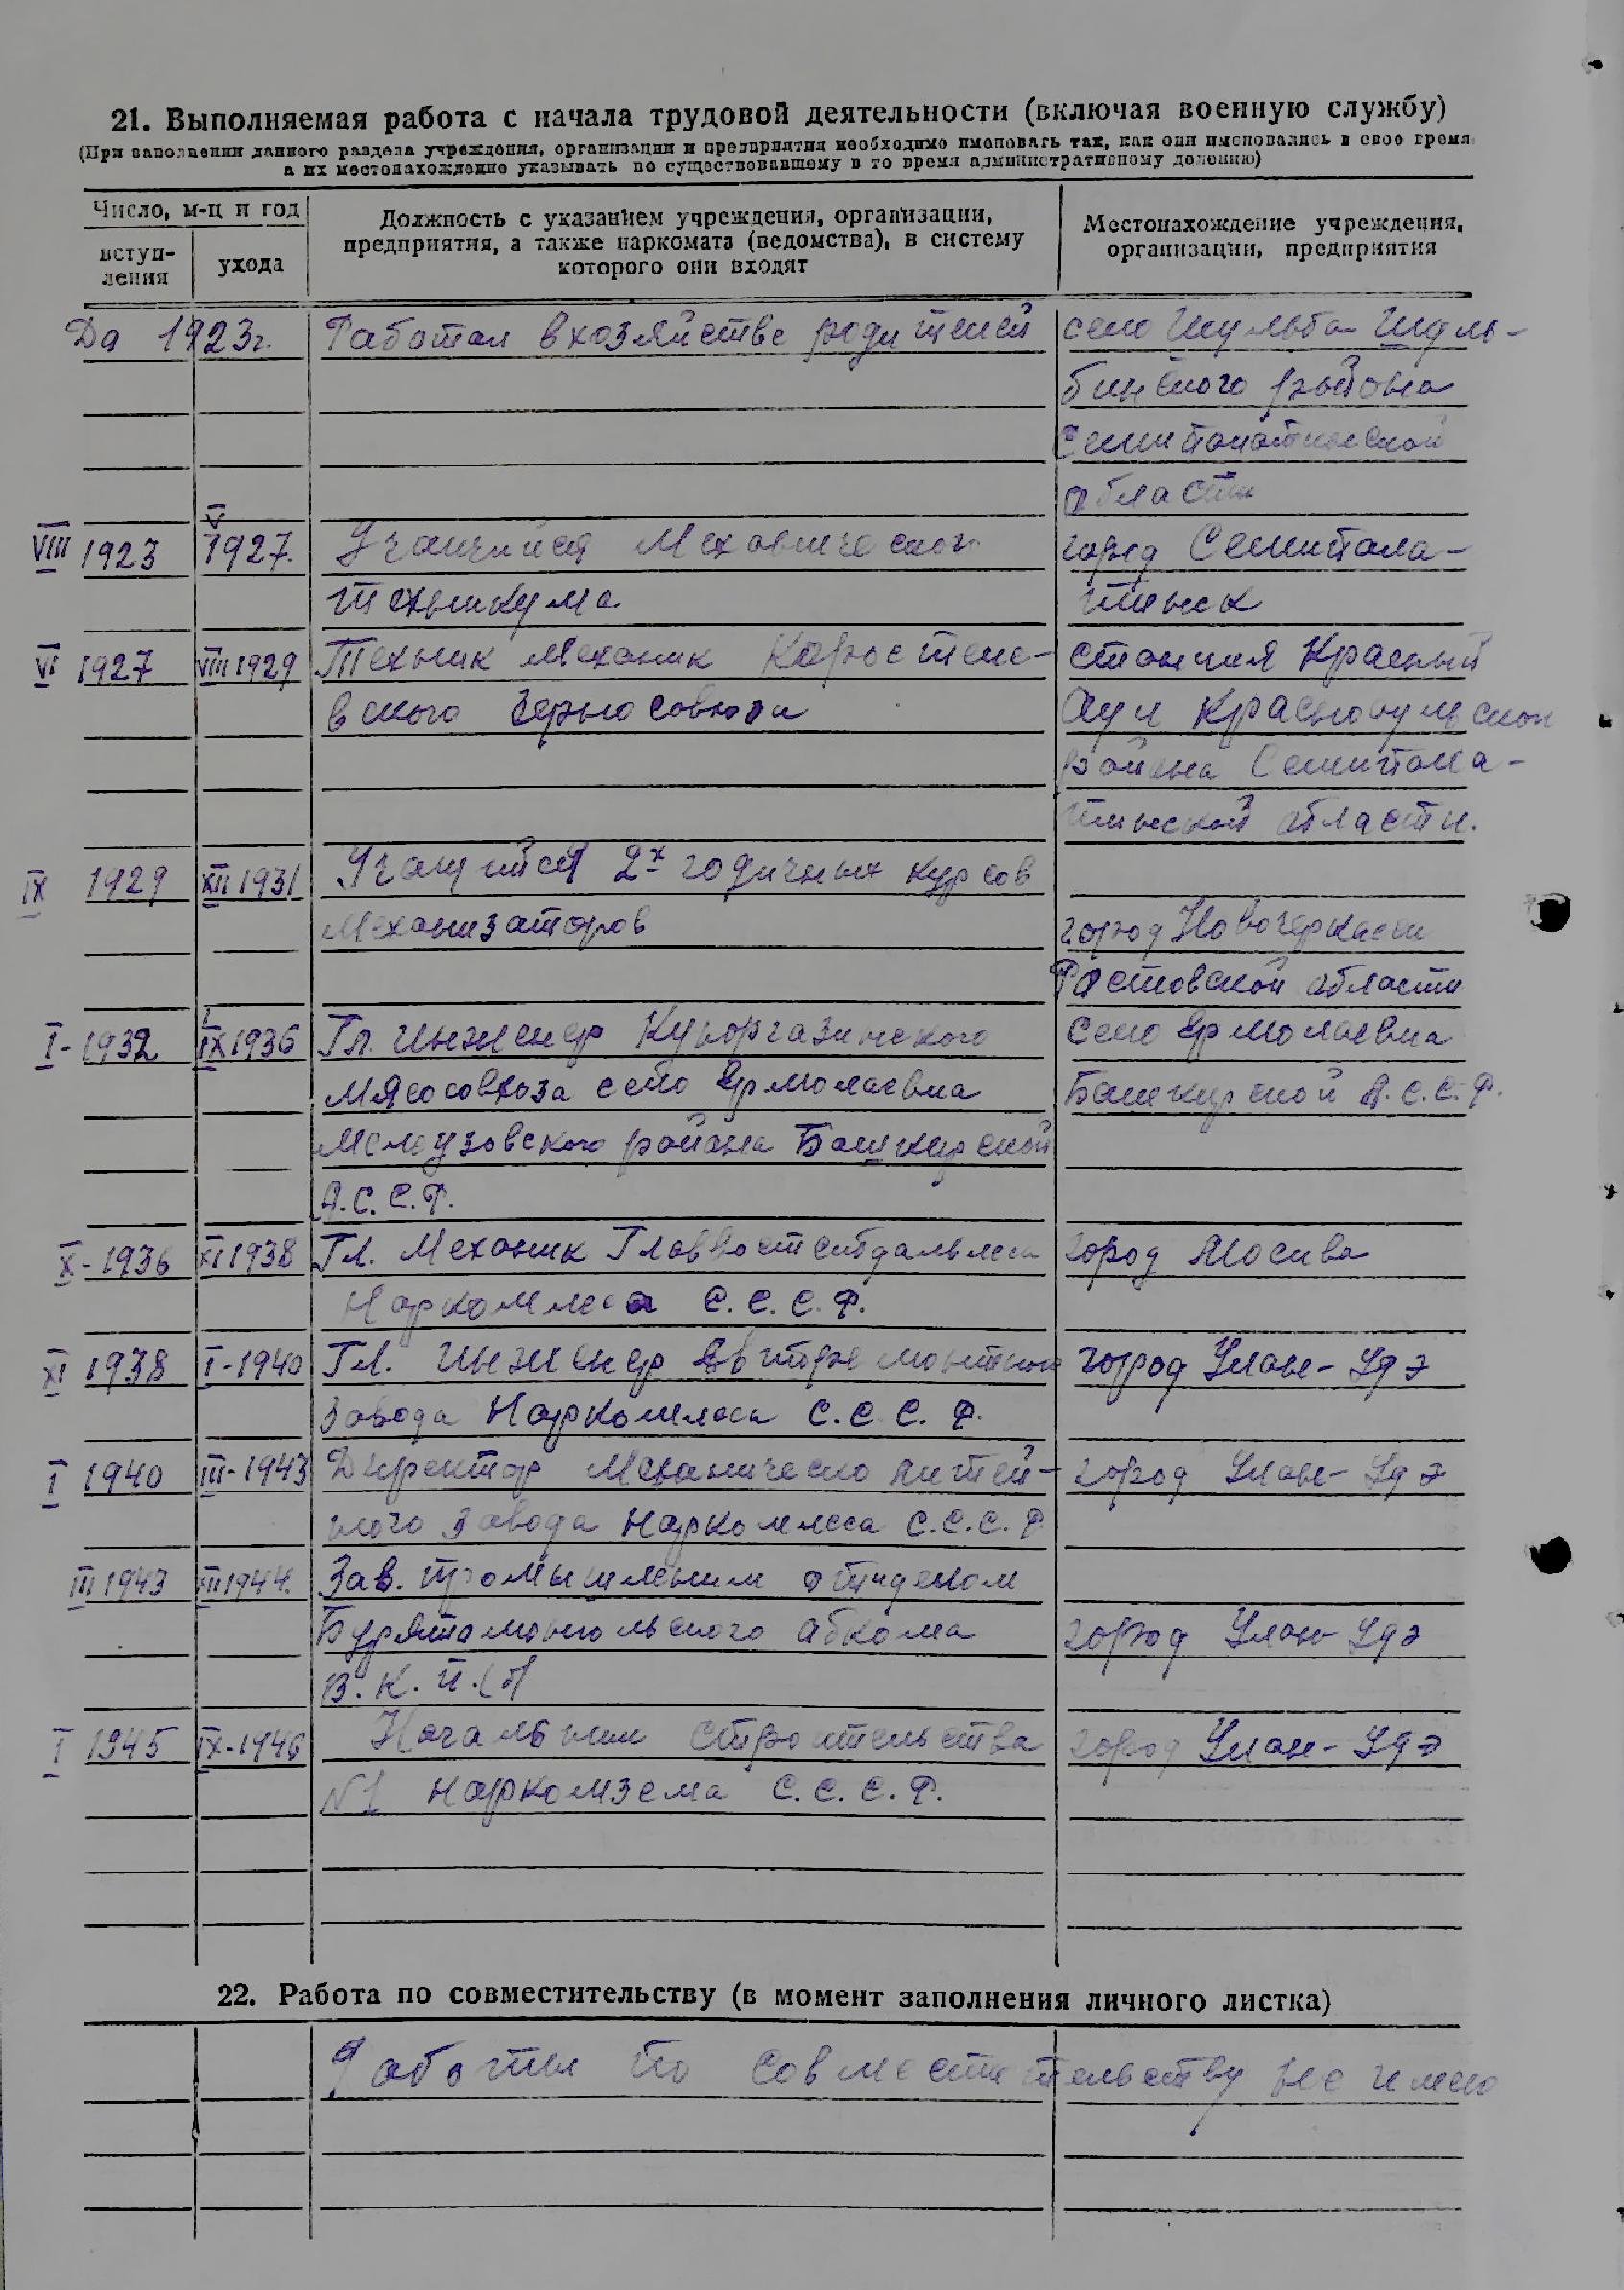 21. Выполняемая работа с начала трудовой деятельности (включая военную службу)
(При заполнении данного раздела учреждения, организации и предприятия необходимо именовать так, как они именовались в свое время
а их местонахождение указывать по существовавшему в то время административному делению)
Число, м-ц и год
вступ-
ления
ухода
Должность с указанием учреждения, организации,
предприятия, а также наркомата (ведомства), в систему
которого они входят
Местонахождение учреждения,
организации, предприятия
До 1923г. Работал в хозяйстве родителей село Шульба Шуль-
бинского района
Семипалатинской
области
VIII 1923 V 1927. Учащийся Механического город Семипала-
техникума тинск
VI 1927 VIII 1929 Техник механик станция Красный
вского Зерносовхоза Аул Красноаульском
района Семипала-
тинской области.
IX 1929 XII 1931 Учащийся 2х годичных курсов
Механизаторов город Новочеркасск
Ростовской области
I-1932 IX 1936 Гл. инженер Куюргазинского село Ермолаевка
Мясосовхоза село Ермолаевка Башкирской А.С.С.Р.
Мелеузовского района Башкирской
А.С.С.Р.
X-1936 XI 1938 Гл. Механик Главвостсибдальлеса город Москва
Наркомлеса С.С.С.Р.
XI 1938 I-1940 Гл. инженер город Улан-Удэ
завода Наркомлеса С.С.С.Р.
I 1940 III-1943 Директор Механическо литей- город Улан-Удэ
ного завода Наркомлеса С.С.С.Р
III 1943 XII 1944. Зав. промышленным отделом
Бурятомонгольского обкома город Улан-Удэ
В.К.П.(б)
I 1945 IX-1946 Начальник строительства город Улан-Удэ
N1 Наркомзема С.С.С.Р.
22. Работа по совместительству (в момент заполнения личного листка)
Работы по совместительству не имею